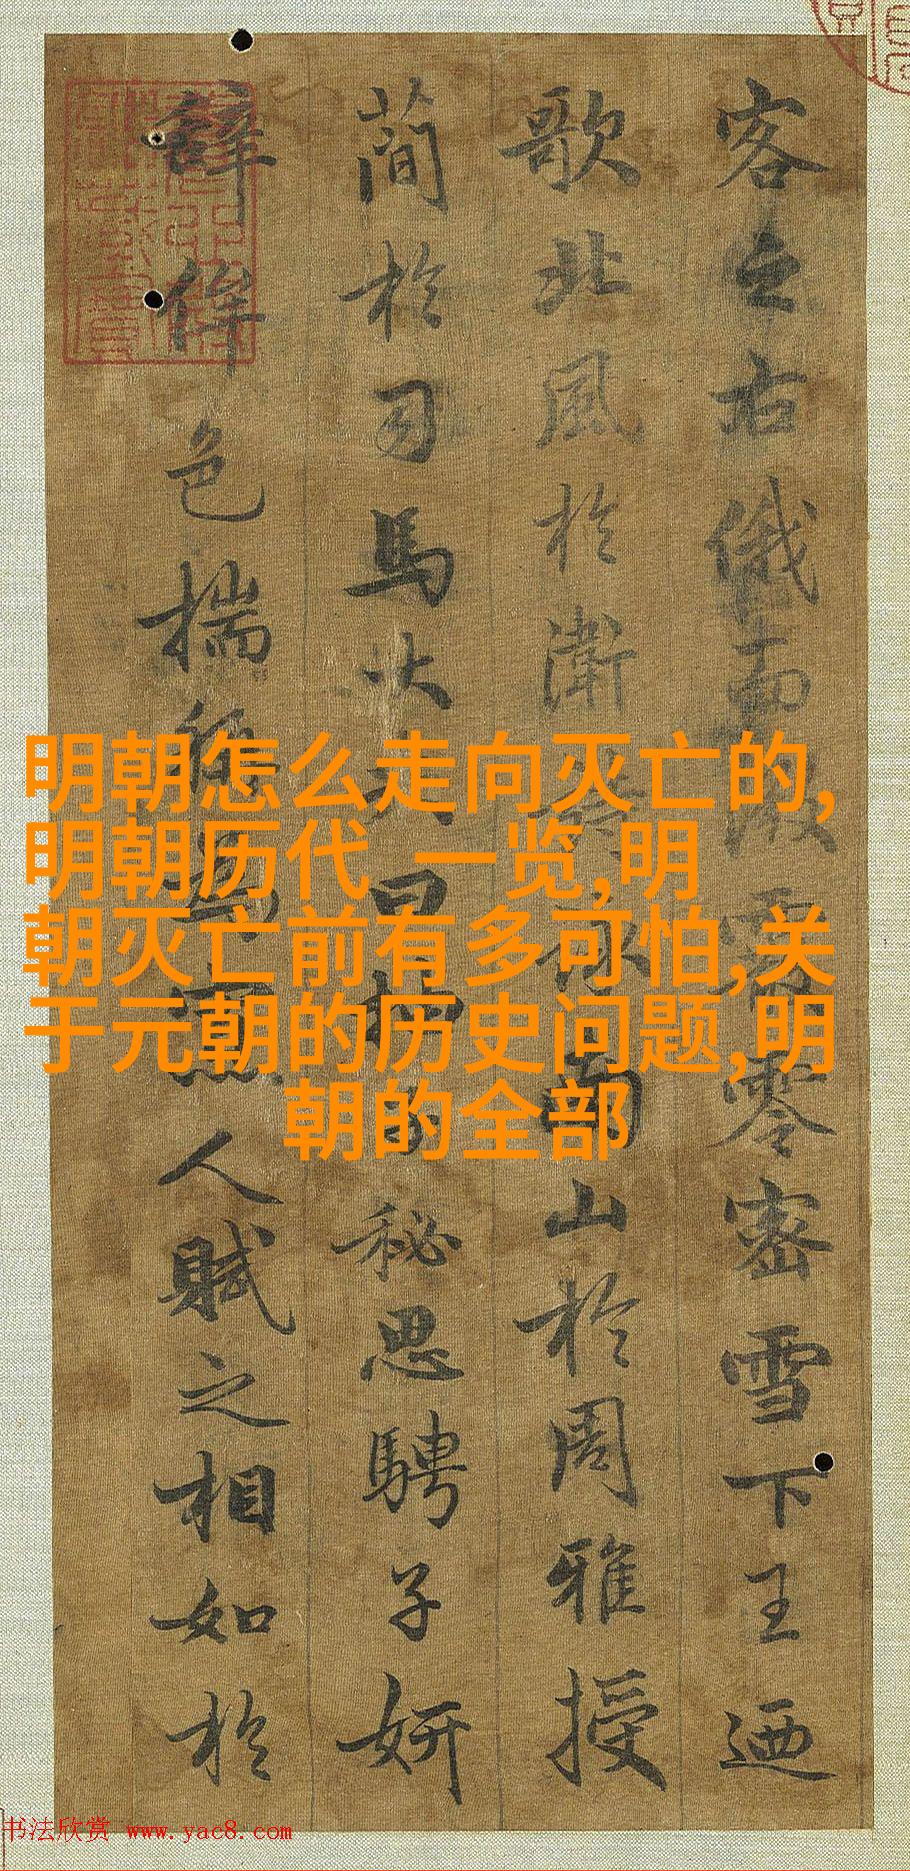 客之右俄而微霰零密雪下王迺
歌北風於衛詠南山於周雅授
蕳於司馬大夫曰抽子秘思騁子妍
辭侔色揣稱為寡人賦之相如於
明朝怎么走向灭亡的,
明朝历代 一览,明
朝灭亡前有多可怕,关
于元朝的历史问题,明
朝的全部
书法欣赏 www.yac8.com